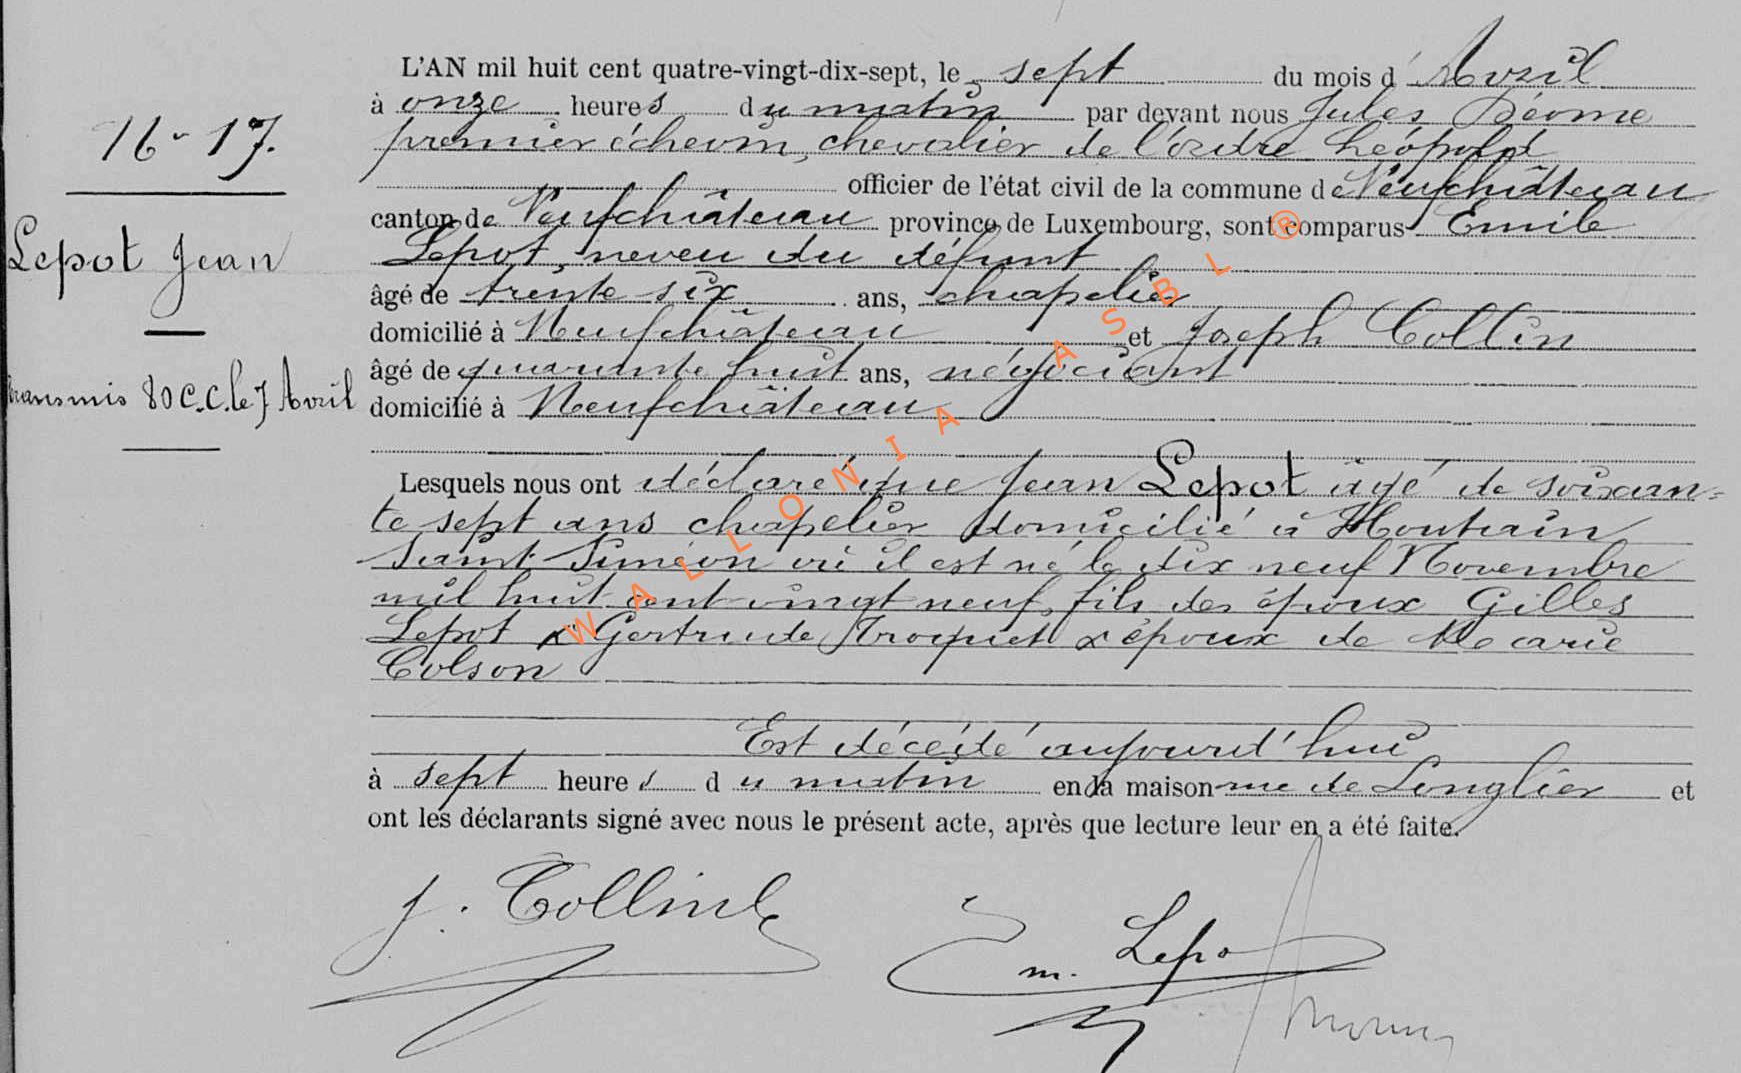 16 - 17.
Lepot Jean
Transmis 80 C.C. le 7 Avril
L'AN mil huit cent quatre-vingt-dix-sept, le sept du mois d'Avril
à onze heures du matin par devant nous Jules
premier échevin, chevalier de l'ordre Léopold
officier de l'état civil de la commune de Neufchâteau
canton de Neufchâteau province de Luxembourg, sont comparus Emile
Lepot, neveu du défunt
âgé de trente six ans, chapelier
domicilié à Neufchâteau et Joseph Collin
âgé de quarante huit ans, négociant
domicilié à Neufchâteau
Lesquels nous ont déclaré que Jean Lepot âgé de soixan=
te sept ans chapelier domicilié à Houtain
Saint Siméon où il est né le dix neuf Novembre
mil huit cent vingt neuf, fils des époux Gilles
Lepot & Gertrude Troquet & époux de Marie
Colson
Est décédé aujourd'hui
à sept heures du matin en la maison rue de Longlier et
ont les déclarants signé avec nous le présent acte, après que lecture leur en a été faite.
J. Collin
Em. Lepo
WALLONIA ASBL ®